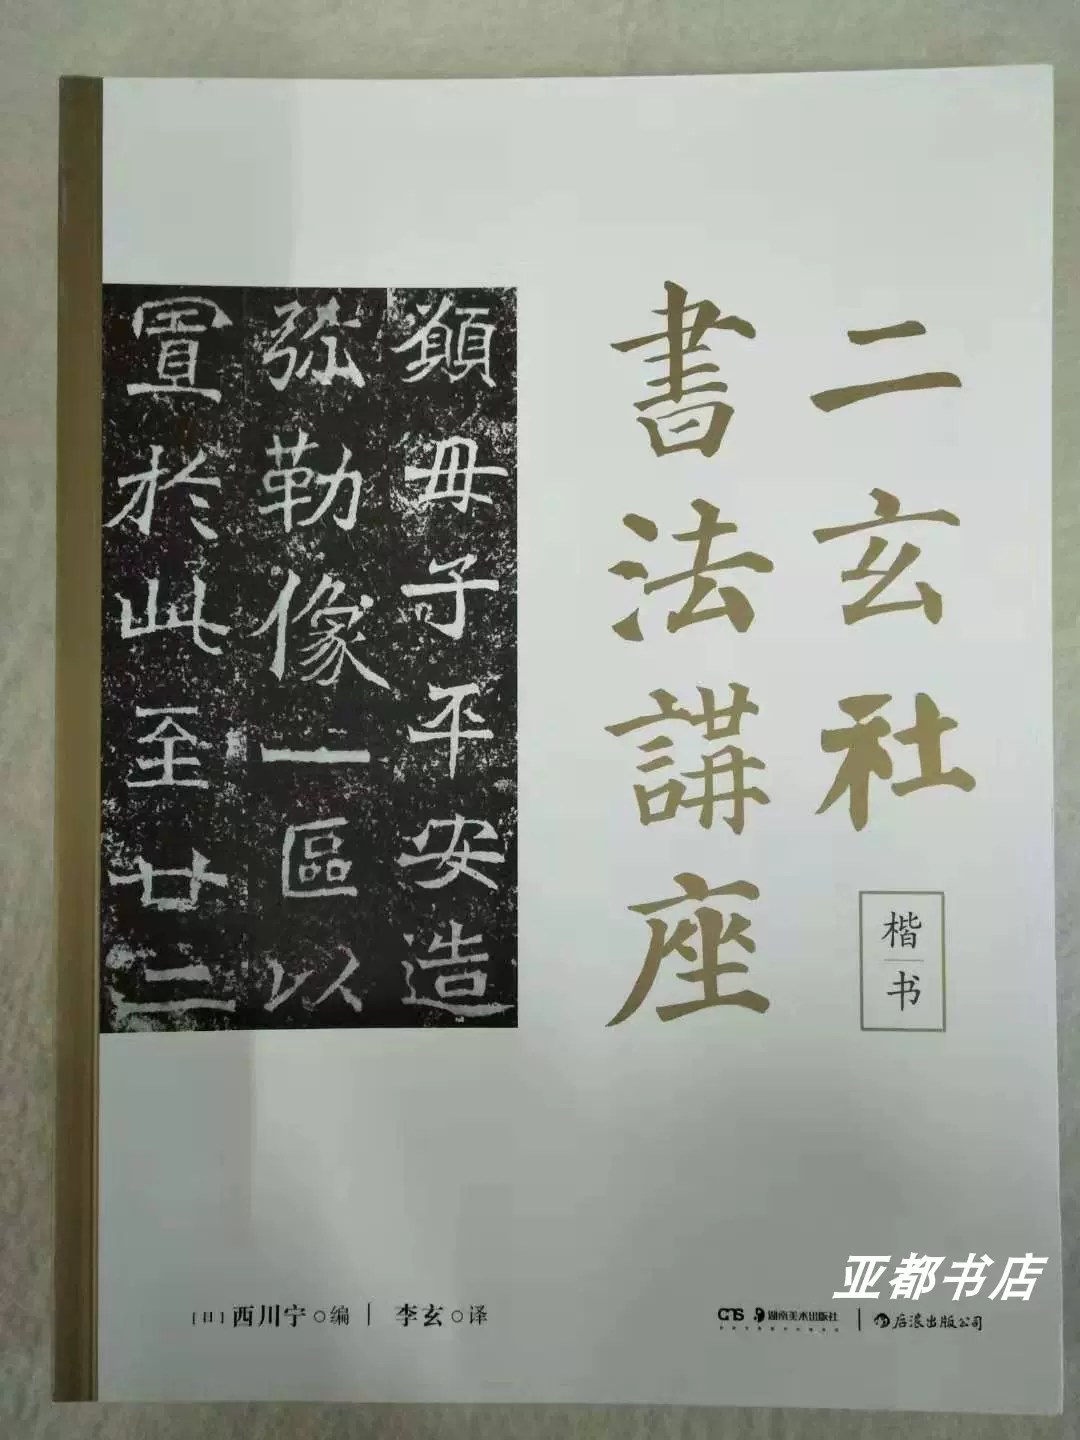 二玄社
書法講座
楷书
顀毋子平安造
弥勒像一區以
置於此至廿二
[日]西川宁○编 | 李玄○译
CTS 湖南美术出版社 | 后浪出版公司
亚都书店